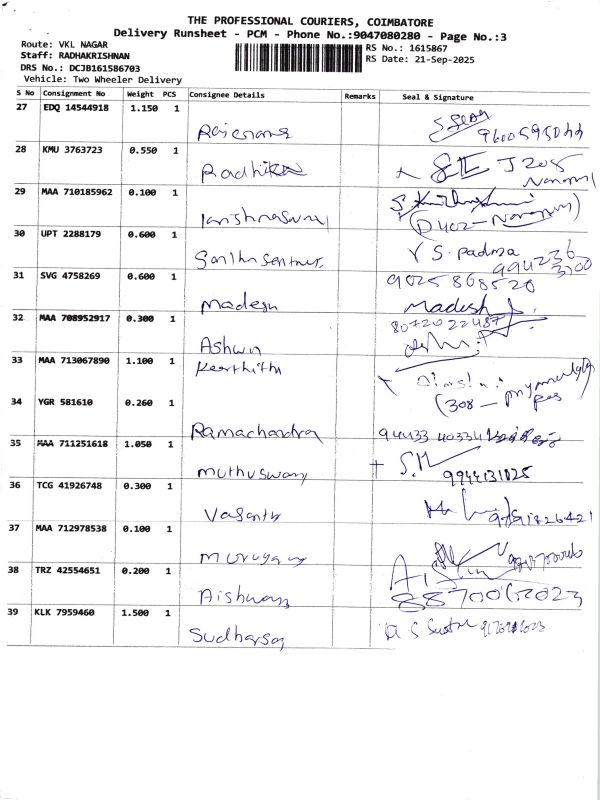 THE PROFESSIONAL COURIERS, COIMBATORE
Delivery Runsheet - PCM - Phone No.:9047080280 - Page No.:3
Route: VKL NAGAR
Staff: RADHAKRISHNAN
DRS No.: DCJB161586703
Vehicle: Two Wheeler Delivery
RS No.: 1615867
RS Date: 21-Sep-2025
S No Consignment No Weight PCS Consignee Details Remarks Seal & Signature
27 EDQ 14544918 1.150 1
9600595044
28 KMU 3763723 0.550 1
Radhika J 205
29 MAA 710185962 0.100 1
D402-
30 UPT 2288179 0.600 1
S. Padma
994236
3200
31 SVG 4758269 0.600 1
9025868520
Madesh Madesh
32 MAA 708952917 0.300 1
8072022487
Ashwin
33 MAA 713067890 1.100 1
Keerthith
34 YGR 581610 0.260 1
(308 -
Ramachandra 94433 40334
35 MAA 711251618 1.050 1
Muthuswamy 9944131025
36 TCG 41926748 0.300 1
Vasanth 9791826421
37 MAA 712978538 0.100 1
Murugan
38 TRZ 42554651 0.200 1
Aishwary
39 KLK 7959460 1.500 1
Sudharsan